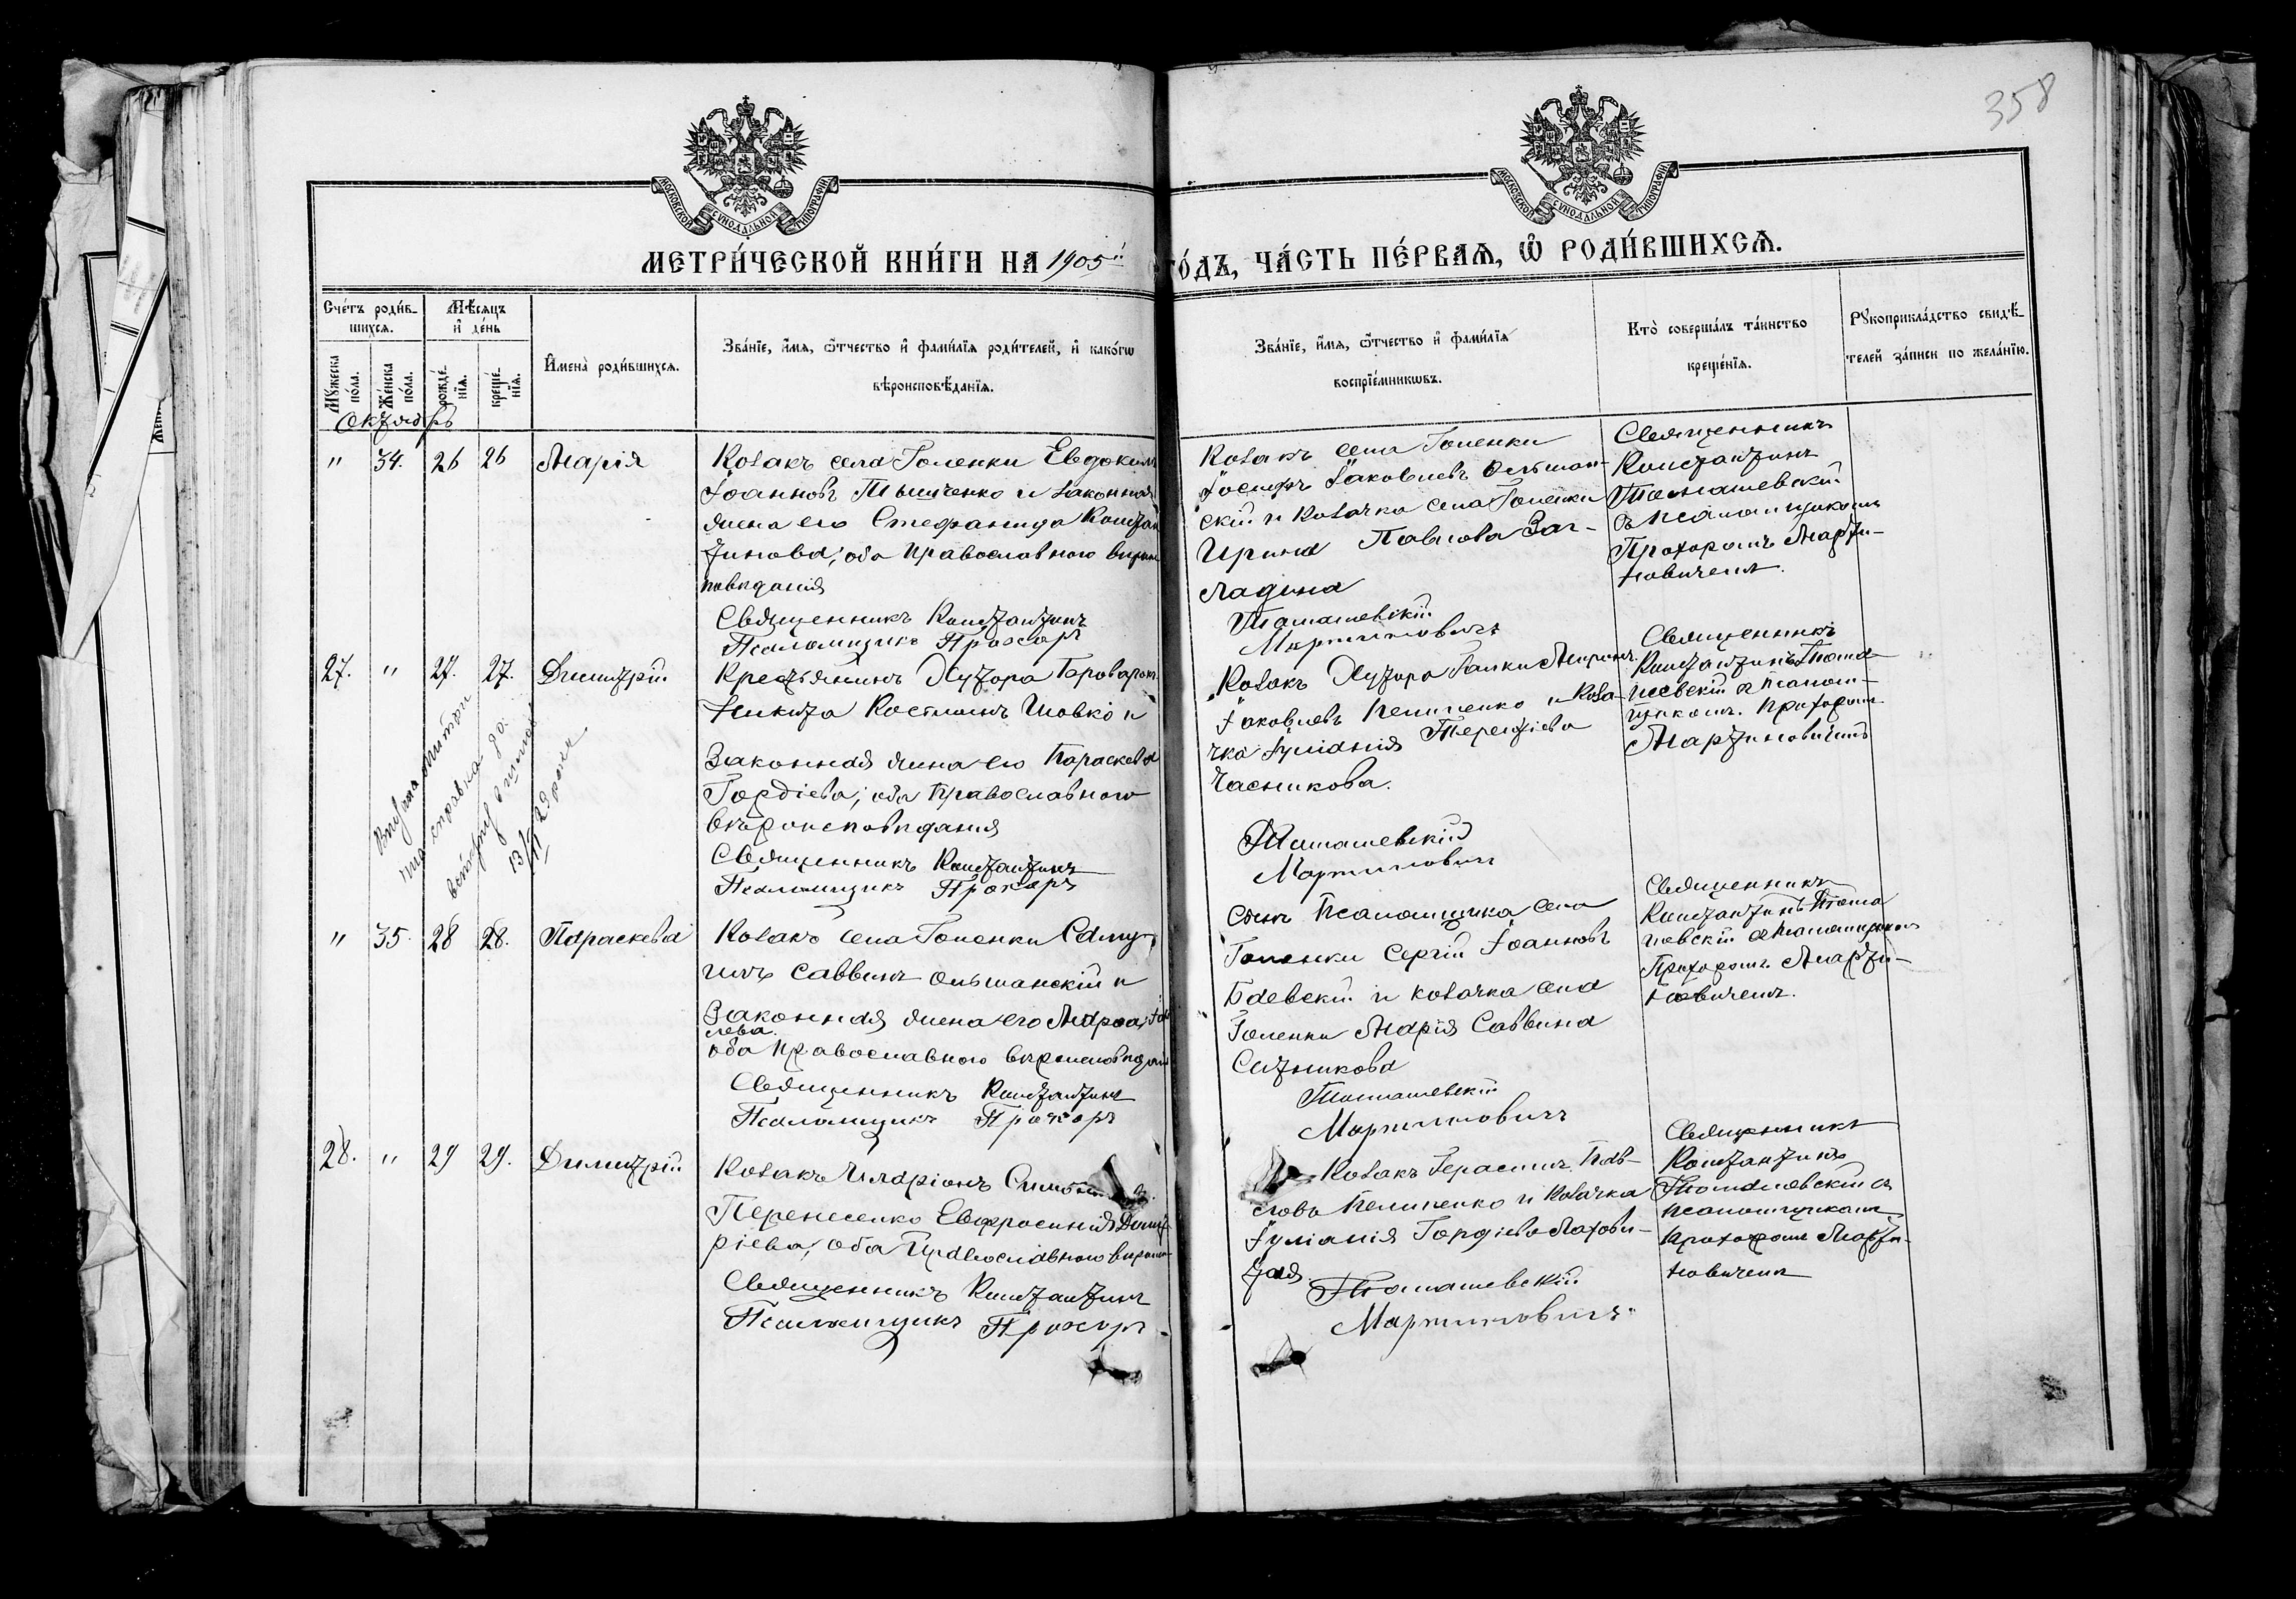 358
МОСКОВСКОЙ СѴНОДАЛЬНОЙ ТИПОГРАФІИ
МОСКОВСКОЙ СѴНОДАЛЬНОЙ ТИПОГРАФІИ
МЕТРИ́ЧЕСКОЙ КНИ́ГИ НА 1905й ГО́ДЪ, ЧА́СТЬ ПЕ́РВАѦ, Ѿ РОДИ́ВШИХСѦ.
Сче́тъ роди́в-
шихсѧ.
Мꙋжеска по́ла.
Же́нска по́ла.
Мѣ́сѧцъ и҆ де́нь
рожде́нїѧ.
креще́нїѧ.
И҆мена̀ роди́вшихсѧ.
Зва́нїе, и҆́мѧ, ѻ҆́тчество и҆ фами́лїѧ роди́телей, и҆ како́гѡ
вѣроисповѣ́данїѧ.
Зва́нїе, и҆́мѧ, ѻ҆́тчество и҆ фами́лїѧ
воспрїе́мникѡвъ.
Кто̀ соверша́лъ та́инство
креще́нїѧ.
Рꙋкоприкла́дство свидѣ́-
телей за́писи по жела́нїю.
Октябрь
" 34. 26 26 Марія
Козакъ села Голенки Евдокимъ
Іоанновъ Тымченко и законная
жена его Стефанида Констан
тинова, оба православного вѣроис
повѣданія
Священникъ Константинъ
Псаломщикъ Прохоръ
Козакъ села Голенки
Іосифъ Іаковлевъ Ольшан-
скій и козачка села Голенки
Ирина Павлова Заг-
ладина
Томашевскій
Мартиновичъ
Священникъ
Константинъ
Томашевскій
съ псаломщикомъ
Прохоромъ Марти-
новичемъ.
27. " 27. 27. Димитрій
Крестьянинъ Хутора
Никита Косминъ Шовко и
Законная жена его Параскева
Гордіева, оба Православного
вѣроисповѣданія
Священникъ Константинъ
Псаломщикъ Прохоръ
Козакъ Хутора Галки
Іаковлевъ Пелипенко и Коза-
чка Іуліанія Терентіева
Часникова.
Томашевскій
Мартиновичъ
Священникъ
Константинъ Тома-
шевскій съ псалом-
щикомъ Прохоромъ
Мартиновичемъ
справка
13/II 29 рок
" 35. 28 28. Параскева
Козакъ села Голенки Саму-
илъ Саввинъ Ольшанскій и
Законная жена его Марѳа Іак
лева.
оба Православного вѣроисповѣданія
Священникъ Константинъ
Псаломщикъ Прохоръ
Сынъ Псаломщика села
Голенки Сергій Іоанновъ
Баевскій и козачка села
Голенки Марія Саввина
Ситникова
Томашевскій
Мартиновичъ
Священникъ
Константинъ Тома
шевскій съ псаломщикомъ
Прохоромъ Марти-
новичемъ.
28. " 29 29. Димитрій
Козакъ Иларіонъ
Перепесенко Евфросинія Димит
ріева, оба Православного вѣроис
Священникъ Константинъ
Псаломщикъ Прохоръ.
Козакъ Герасимъ Пав-
ловъ Пелипенко и козачка
Іуліанія Гордіева Лахови-
тая
Томашевскій
Мартиновичъ.
Священникъ
Константинъ
Томашевскій съ
псаломщикомъ
Прохоромъ Марти-
новичемъ